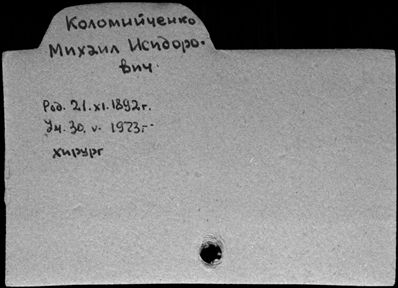 Коломийченко
Михаил Исидоро-
вич
Род. 21. XI. 1892 г.
Ум. 30. V. 1973 г.
хирург